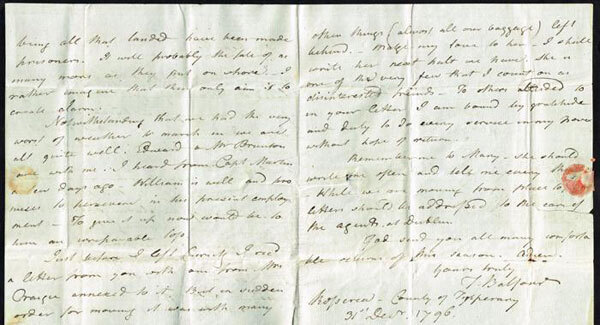 being all that landed have been made
prisoners. It will probably the fate of as
many more as they put on shore. I
rather imagine that they only aim it to
create alarm.
Notwithstanding that we had the very
worst of weather to march in we are
all quite well. Edward & Mr Brunton
are with me. I heard from Capt Martin
a few days ago. William is well and pro
mises to persevere in his present employ
ment — To give it up now would be to
him an irreparable loss.
Just before I left Limrick I recd
a letter from you with one from Mrs
Craigie annexed to it. But in sudden
order for moving it was with many
other things (almost all our baggage) left
behind. Make my love to her. I shall
write her next halt we have. She is
one of the very few that I count on as
disinterested friends — To others alluded to
in your letter I am bound by gratitude
and duty to do every service in my power
without hope of return.
Remember me to Mary. She should
write me often and tell me every
While we are moving from place to
letters should be addressed to the care of
the agents at Dublin.
God send you all many comforta
ble returns of this season. Adieu.
Yours truly
T. Balfour
Roscrea — County of Tipperary
31st Decr. 1796